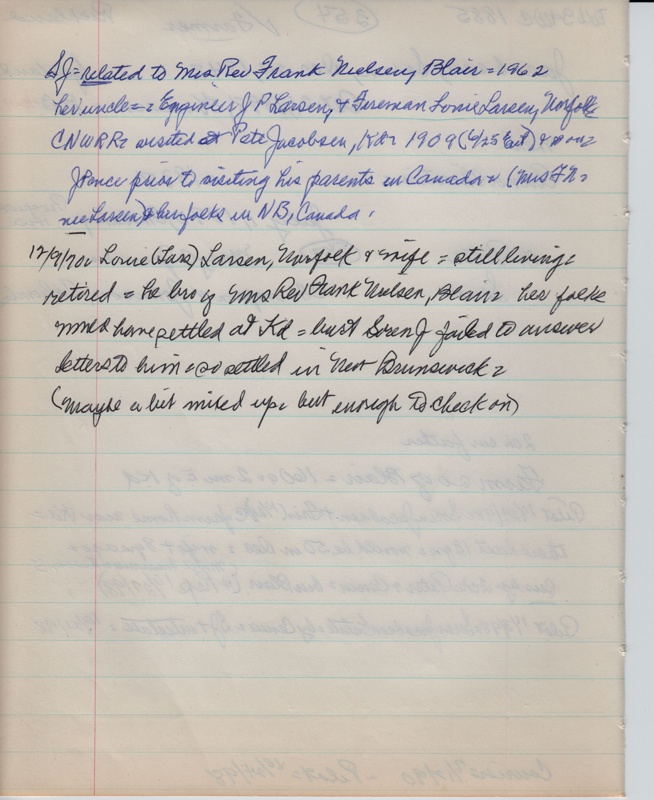 SJ = related to Mrs Rev Frank Nielsen, Blair = 1962
her uncle = Engineer J P Larsen, + Fireman Louie Larsen, Norfolk
CNWRR = visited at Pete Jacobsen, Kd = 1909 (4/25 Ent) +
J Pance prior to visiting his parents in Canada + (Mrs F N =
nee Larsen) & her folks in NB, Canada,
12/9/70 = Louie (Lars) Larsen, Norfolk + wife = still living =
retired = he bro of Mrs Rev Frank Nielsen, Blair = her folks
would have settled at Kd = but Soren J failed to answer
letters to him = so settled in New Brunswick =
(maybe a bit mixed up = but enough to check on)